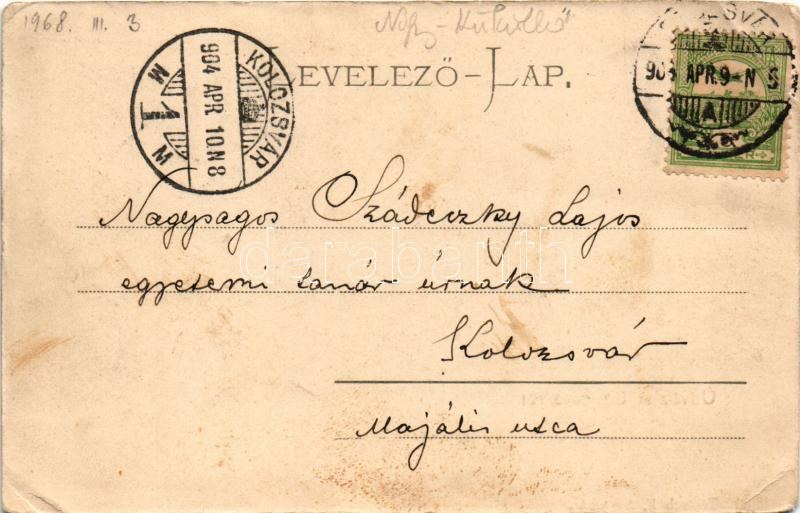 1968. III. 3 Nagy-Küküllő
LEVELEZŐ-LAP.
KOLOZSVÁR
904 APR. 10 N 8
M 1 M
904 APR. 9-N 5
A
Nagyságos Szádeczky Lajos
darabanth
egyetemi tanár úrnak
Kolozsvár
Majális utca